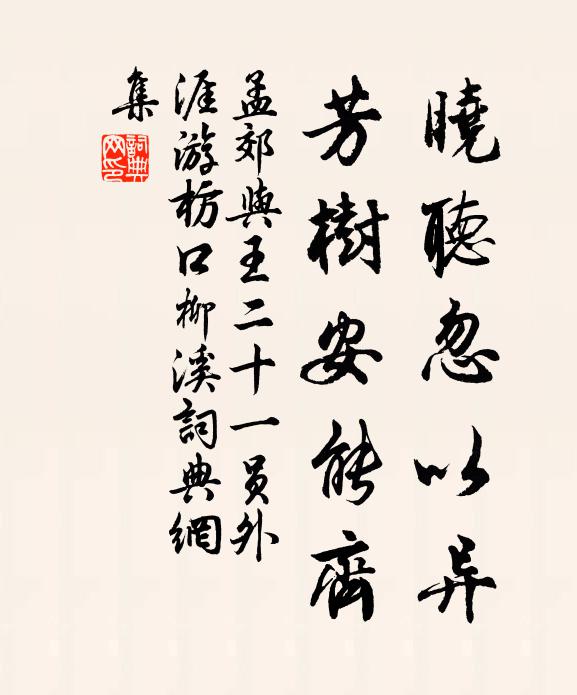 曉聽忽以异
芳樹安能齊
孟郊與王二十一员外
涯游枋口柳溪詞典網
集
詞典
网印